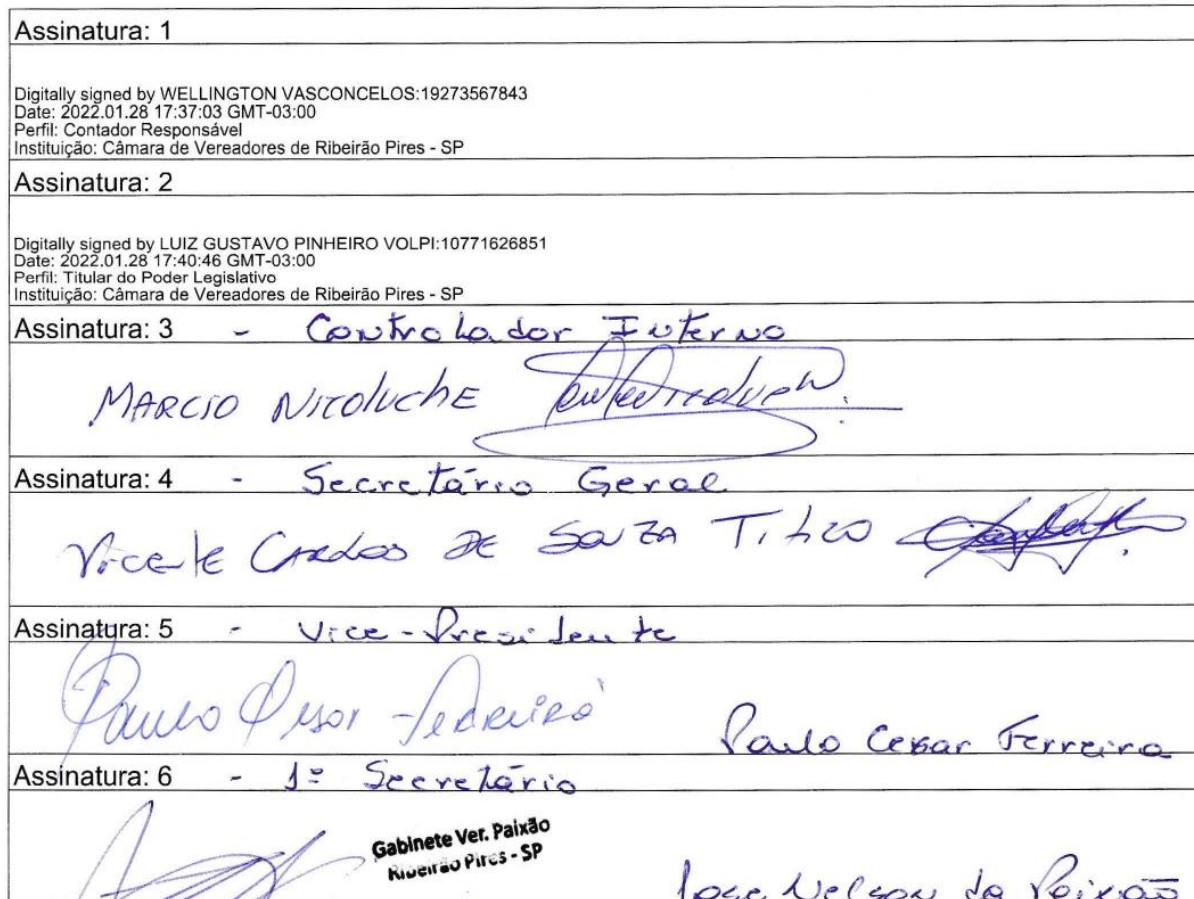 Assinatura: 1
Digitally signed by WELLINGTON VASCONCELOS:19273567843
Date: 2022.01.28 17:37:03 GMT-03:00
Perfil: Contador Responsável
Instituição: Câmara de Vereadores de Ribeirão Pires - SP
Assinatura: 2
Digitally signed by LUIZ GUSTAVO PINHEIRO VOLPI:10771626851
Date: 2022.01.28 17:40:46 GMT-03:00
Perfil: Titular do Poder Legislativo
Instituição: Câmara de Vereadores de Ribeirão Pires - SP
Assinatura: 3 - Controlador Interno
MARCIO NICOLUCHE
Assinatura: 4 - Secretário Geral
VICENTE CARLOS DE SOUZA
Assinatura: 5 - Vice-Presidente
Paulo Cesar Ferreira
Paulo Cesar Ferreira
Assinatura: 6 - 1º Secretário
Gabinete Ver. Paixão
Ribeirão Pires - SP
Jose Nelson da Paixão